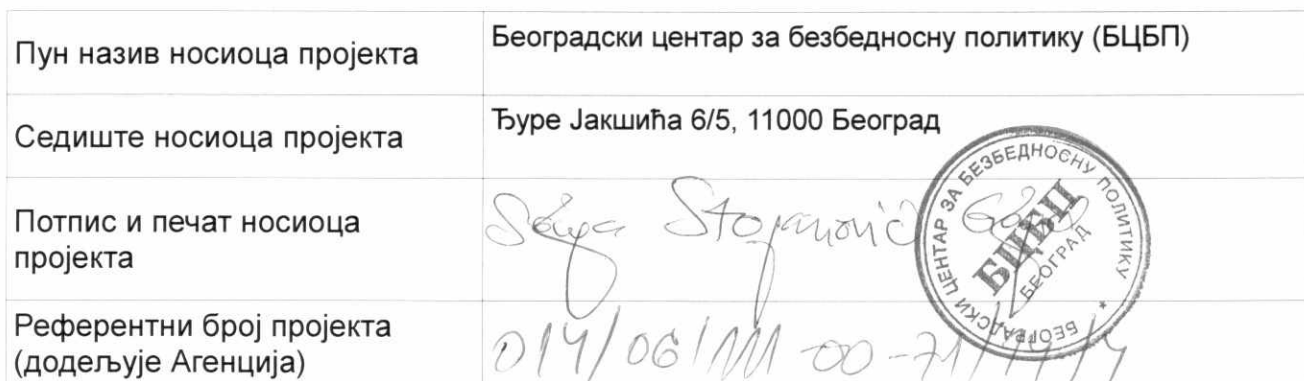 Пун назив носиоца пројекта
Београдски центар за безбедносну политику (БЦБП)
Седиште носиоца пројекта
Ђуре Јакшића 6/5, 11000 Београд
Потпис и печат носиоца
пројекта
Stojanović
БЕОГРАДСКИ ЦЕНТАР ЗА БЕЗБЕДНОСНУ ПОЛИТИКУ
БЦБП
БЕОГРАД
Референтни број пројекта
(додељује Агенција)
014/06/